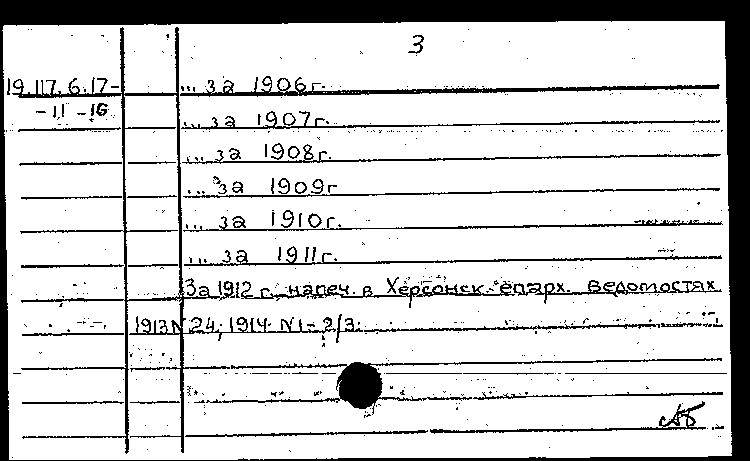 3
19.117.6.17- ... за 1906г.
-11 -16
... за 1907г.
... за 1908г.
... за 1909г
... за 1910г.
... за 1911г.
За 1912 г. напеч. в Херсонск. епарх. ведомостях
1913 N 24; 1914. N 1-2/3.